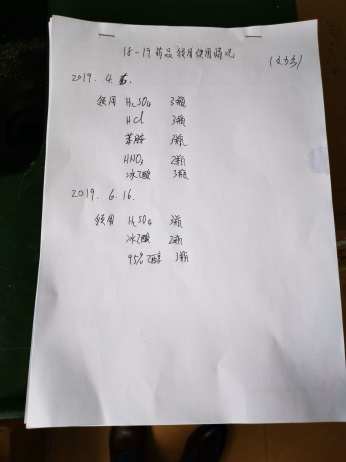 18-19药品领用使用情况
2019.4.
领用 H₂SO₄ 3瓶
HCl 3瓶
苯胺 3瓶
HNO₃ 2瓶
冰乙酸 3瓶
2019.6.16.
领用 H₂SO₄ 3瓶
冰乙酸 2瓶
95%乙醇 3瓶